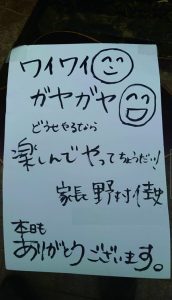 ワイワイ
ガヤガヤ
どうせやるなら
楽しんでやってちょうだいッ!
家長 野村佳
本日も
ありがとうございます。